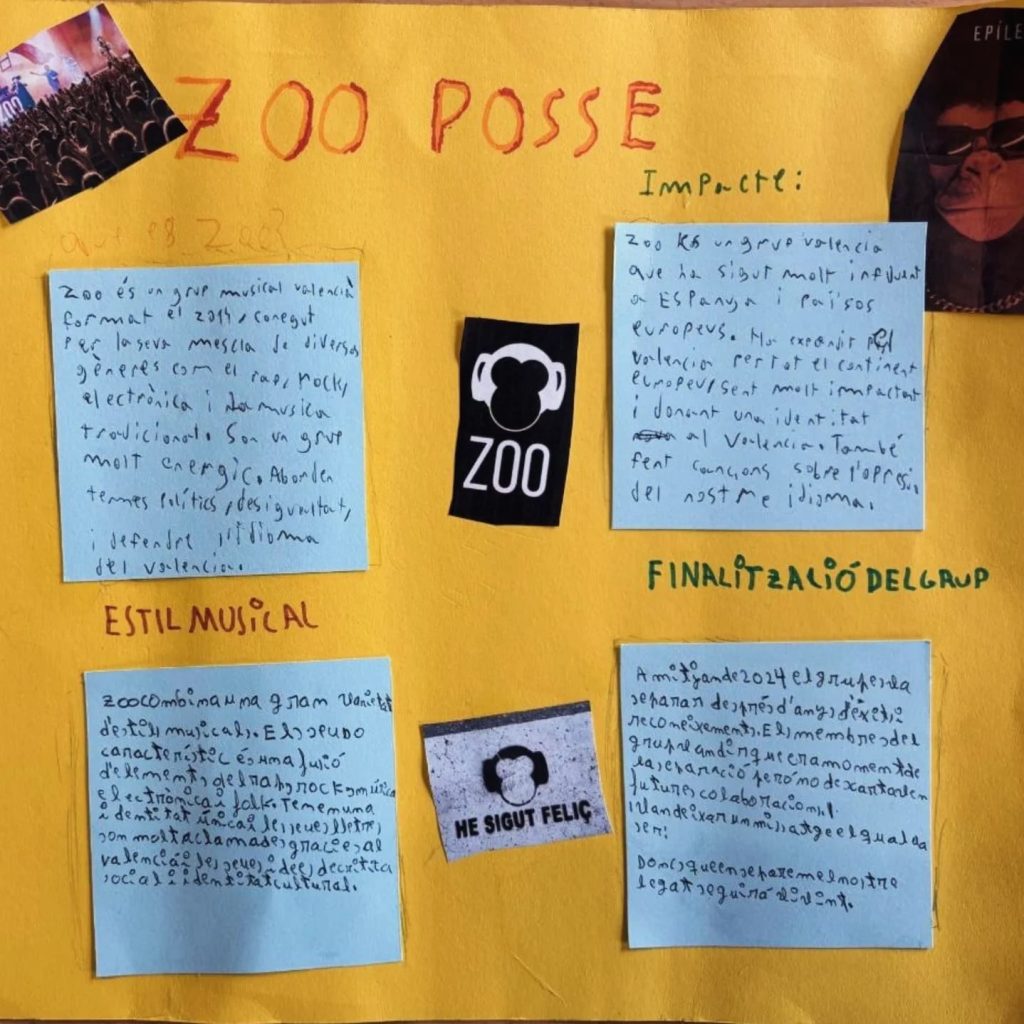 ZOO POSSE
EPÍLE
ZOO
Impacte:
que es Zoo?
Zoo és un grup musical valencià
format el 2014, conegut
per la seva mescla de diversos
gèneres com el rap, rock,
electrònica i la musica
tradicional. Son un grup
molt energic. Aborden
temes polítics, desigualtat,
i defendre l'idioma
del valencia.
ZOO
Zoo es un grup valencia
que ha sigut molt influent
a Espanya i països
europeus. Ha expandit el
valencia per tot el continent
europeu, sent molt impactant
i donant una identitat
al valencia. També
fent cançons sobre l'opresio
del nostre idioma.
ESTIL MUSICAL
zoo combina una gran varietat
d'estils musicals. El seu do
característic és una fusió
d'elements del rap, rock, música
electrònica i folk. Tenen una
identitat única i les seues lletres
son molt aclamades gracies al
valencià i les seues idees de critica
social i identitat cultural.
HE SIGUT FELIÇ
FINALITZACIÓ DEL GRUP
A mitjan de 2024 el grup es va
separar després d'anys d'èxit i
reconeixement. Els membres del
grup van dir que era moment de
la separació però no descartaren
futures colaboracions, i
van deixar un missatge el qual va
ser:
Doncs que en separem el nostre
legat seguirà vivint.